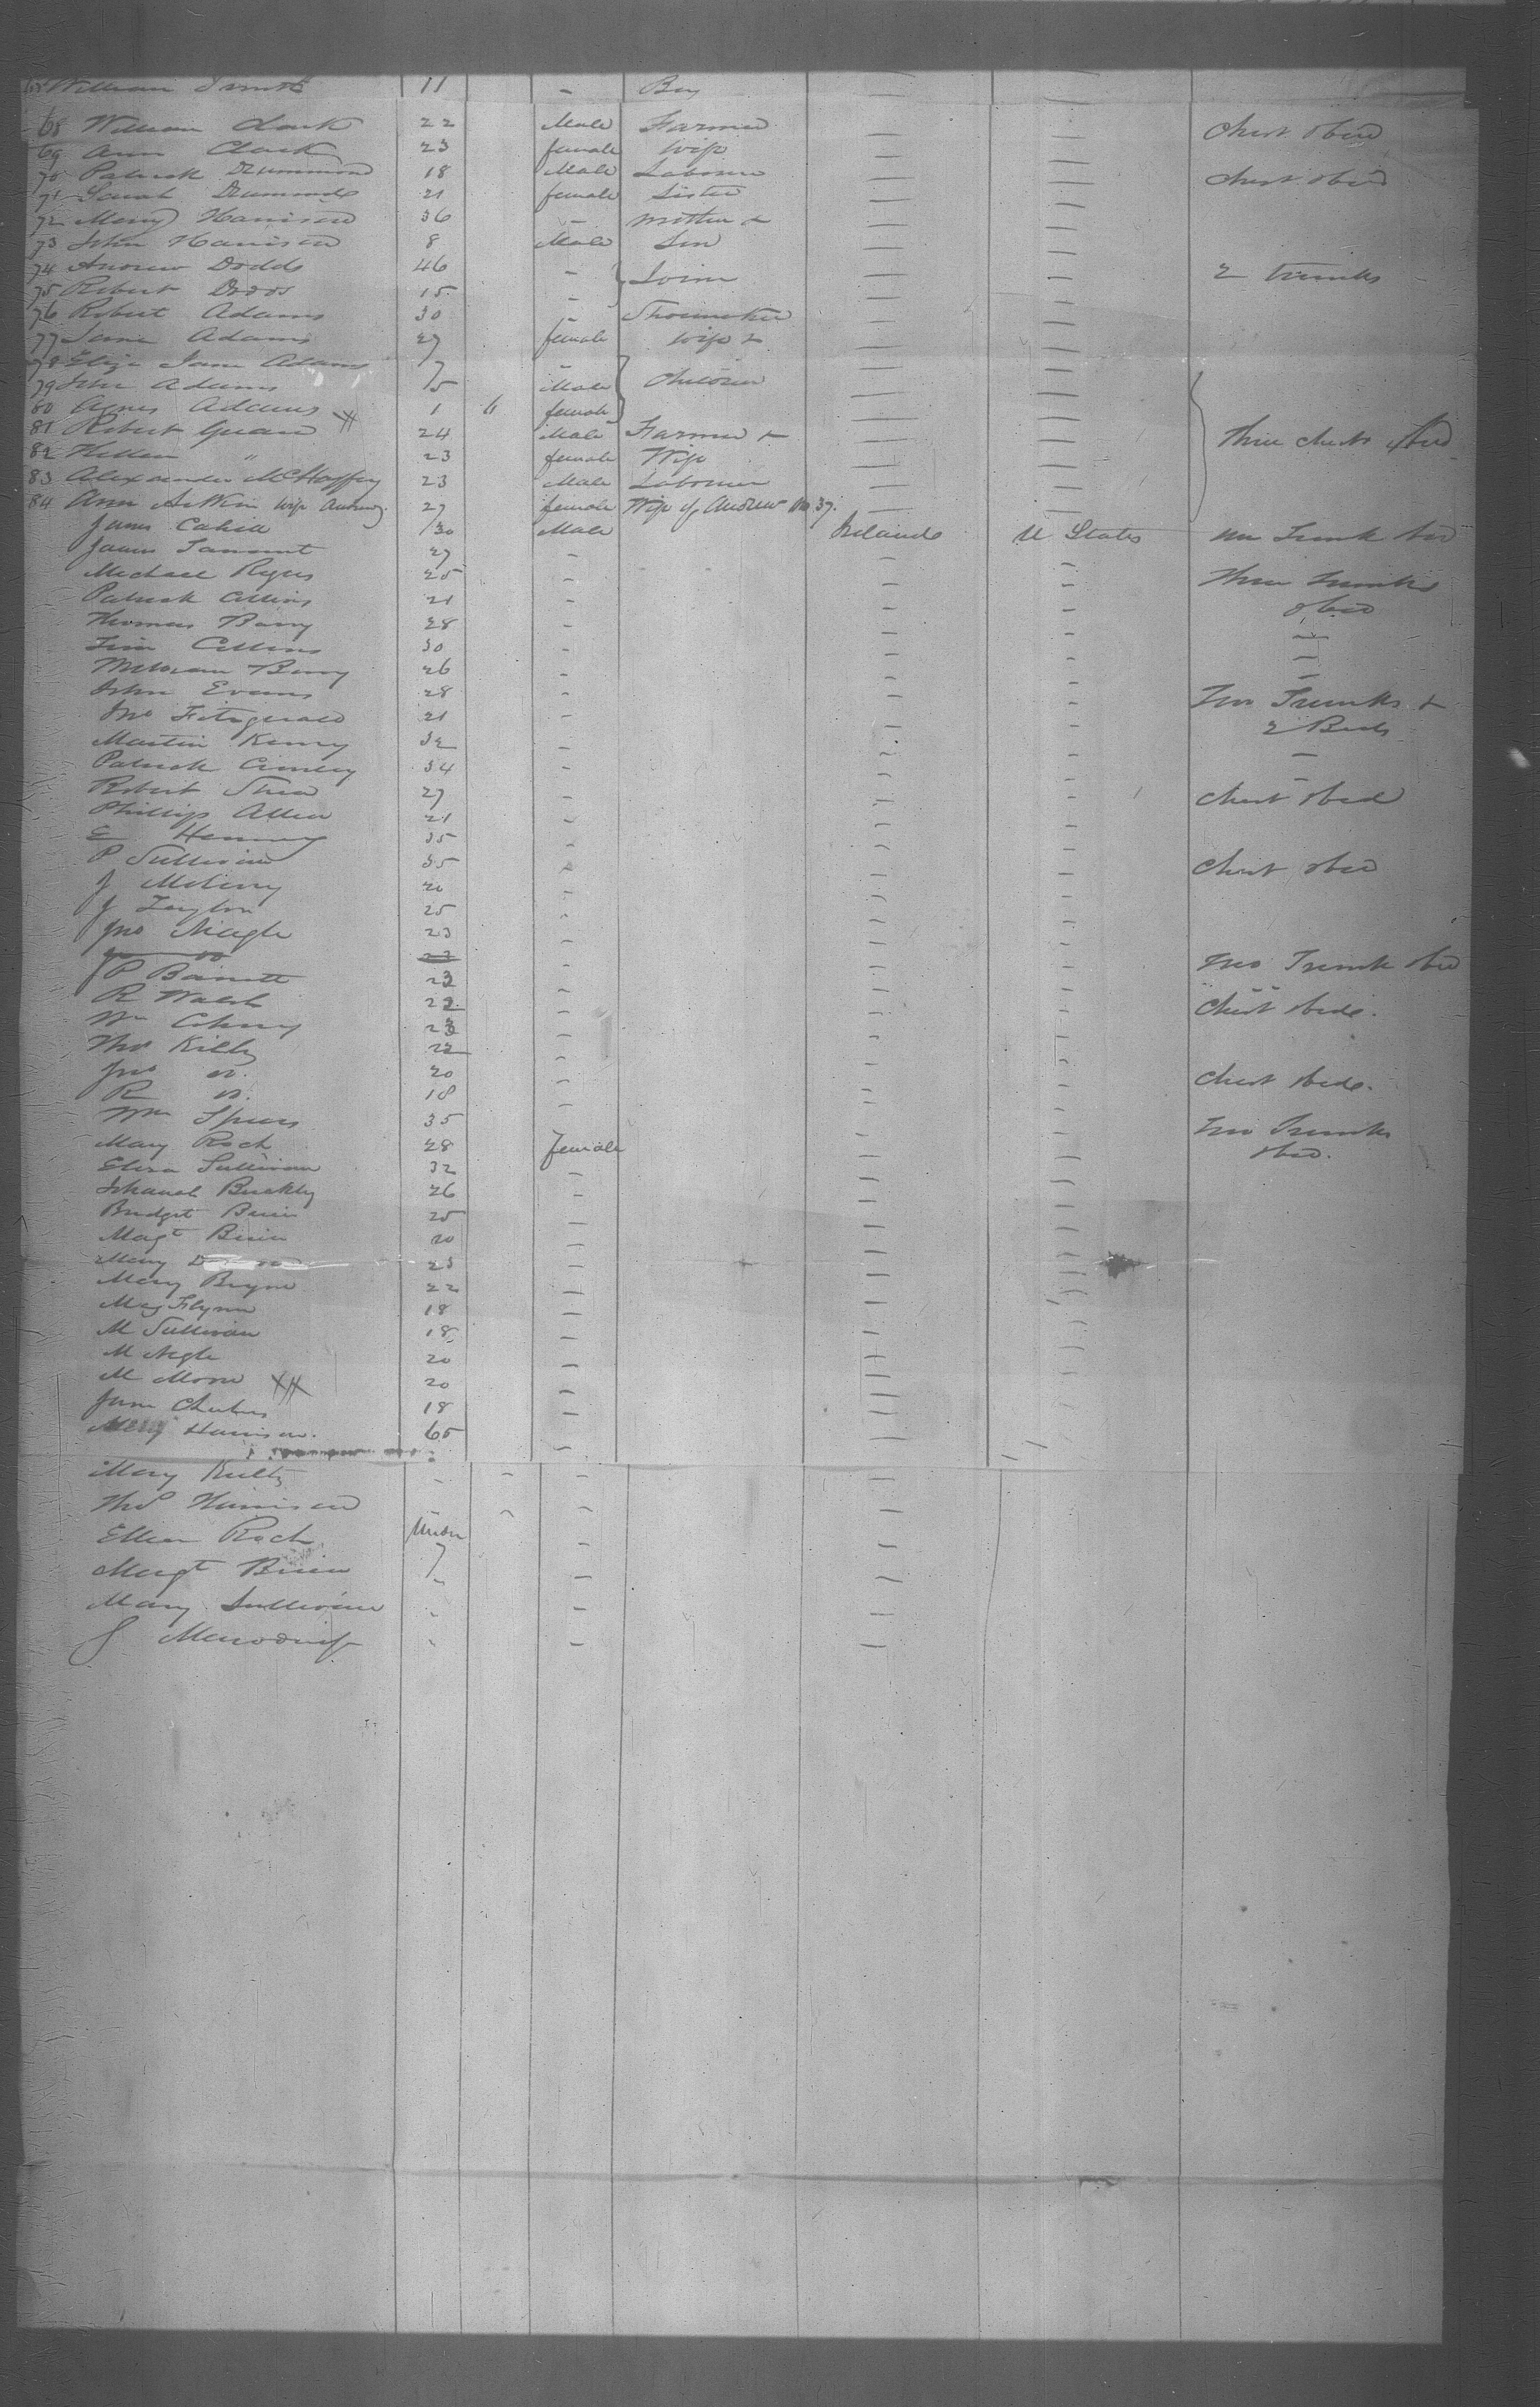 William Smith 11 - Boy
68 William Clark 22 Male Farmer Chest & bed
69 Ann Clark 23 female Wife
70 Patrick Drummond 18 Male Laborer Chest & bed
71 Sarah Drummond 21 female Sister
72 Mary Harrison 36 - Mother &
73 John Harrison 8 Male Son
74 Andrew Dodds 46 - 2 trunks
75 Robert Dodds 15 -
76 Robert Adams 30 - Shoemaker
77 Jane Adams 27 female Wife &
78 Eliza Jane Adams 7 -
79 John Adams 5 Male Children
80 Agnes Adams 1 6 female
81 Robert 24 Male Farmer & Three chests & bed
82 Hellen " 23 female Wife
83 Alexander McHaffey 23 Male Laborer
84 Ann Aitkin wife Andrew 27 female Wife of Andrew No 37.
James Cahill 30 Male Ireland U States
James 27 - - -
Michael 25 - - - Three Trunks
Patrick Collins 21 - - - & bed
Thomas Barry 28 - - - -
Collins 30 - - - -
William Barry 26 - - - -
John Evans 28 - - - Two Trunks &
Jno Fitzgerald 21 - - - 2 Beds
Martin Kenny 32 - - - -
Patrick 34 - - - -
Robert Shea 27 - - - Chest & bed
Phillip Allen 21 - - -
E 35 - - -
P Sullivan 35 - - - Chest & bed
J 20 - - -
J Taylor 25 - - -
Jno Nagle 23 - - -
23 Two Trunk & bed
P Barrett 23 - - - " "
R Walsh 22 - - - Chest & beds.
Wm 23 - - -
Thos Kielty 22 - - -
Jno Do. 20 - - - Chest & beds.
R Do. 18 - - -
Wm Spears 35 - - - Two Trunks
Mary Roch 28 female - - & bed.
Eliza Sullivan 32 - - -
Johanah Buckley 26 - - -
Bridget Brien 25 - - -
Magt Brien 20 - - -
Mary 23 - - -
Mary Bryne 22 - - -
Mag Flynn 18 - - -
M Sullivan 18 - - -
M Nagle 20 - - -
M Morse 20 - - -
Jane 18 - -
Mary Harrison. 65 - -
Mary Kielty - - - -
Thos Harrison - - - -
Ellen Roch Under - -
Margt Brien 7 - -
Mary Sullivan - - -
J - - -